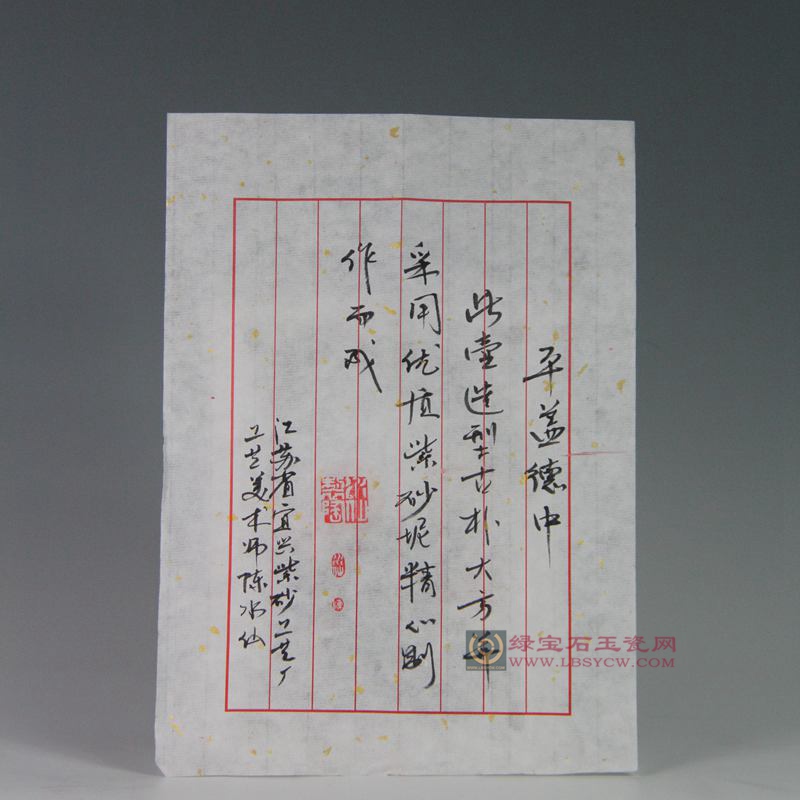 平盖德中
此壶造型古朴大方
采用优质紫砂坭精心制
作而成
江苏省宜兴紫砂工艺厂
工艺美术师陈水仙
绿宝石玉瓷网
WWW.LBSYCW.COM